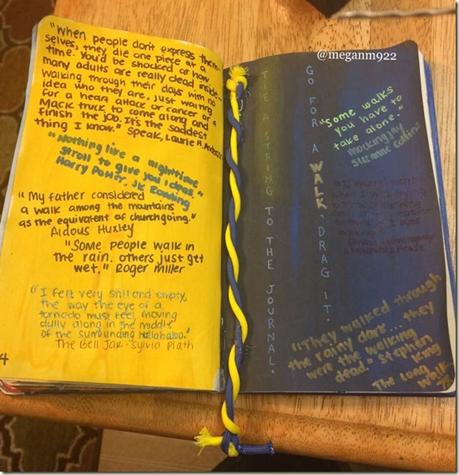 "When people don't express them-
selves, they die one piece at a
time. You'd be shocked at how
many adults are really dead inside-
walking through their days with no
idea who they are, just waiting
for a heart attack or cancer or a
Mack truck to come along and
finish the job. It's the saddest
thing I know." Speak, Laurie H. Anderson
"Nothing like a nighttime
Stroll to give you ideas."
Harry Potter, JK Rowling
"My father considered
a walk among the mountains
as the equivalent of churchgoing."
Aldous Huxley
"Some people walk in
the rain, others just get
wet." Roger Miller
"I felt very still and empty,
the way the eye of a
tornado must feel, moving
dully along in the middle
of the surrounding hullabaloo."
The Bell Jar - Sylvia Plath
4
@meganm922
STRING TO THE JOURNAL.
GO FOR A WALK, DRAG IT.
"Some walks
you have to
take alone."
Mockingjay
Suzanne Collins
"They walked through
the rainy dark... they
were the walking
dead." Stephen
King
The Long
Walk